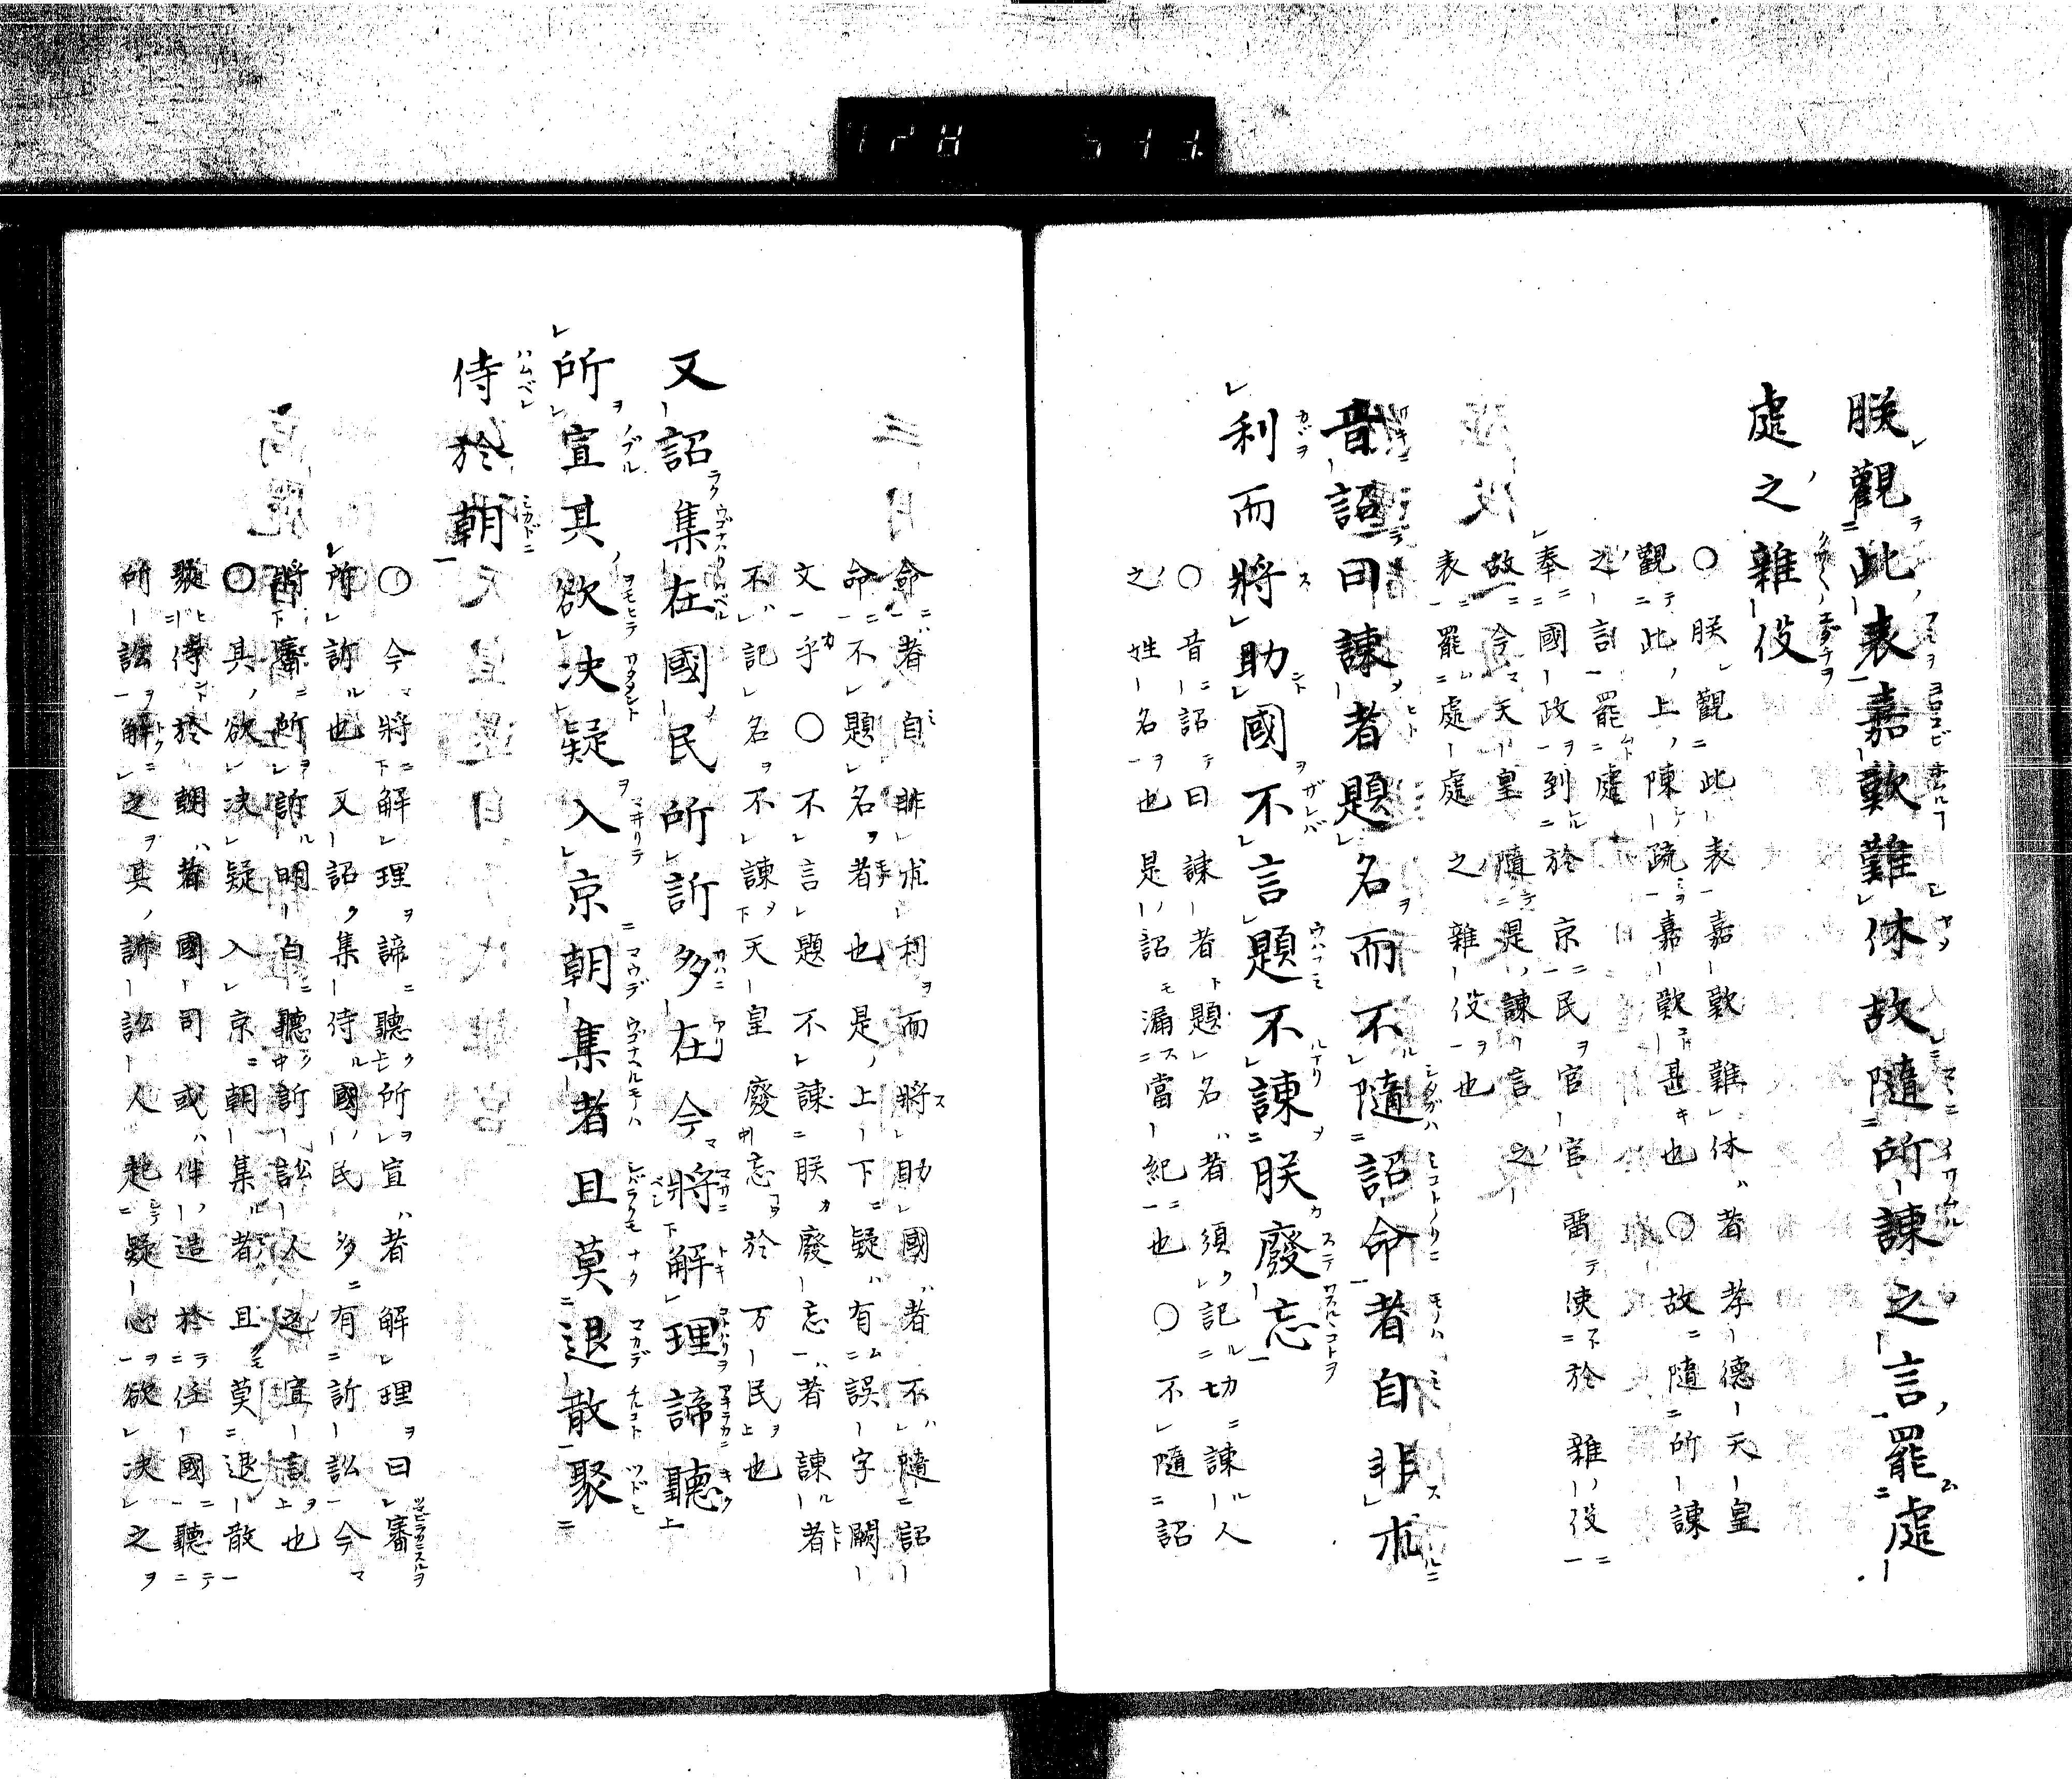 朕觀此表嘉歎難休故隨所諫之言罷處
處之雜役
○朕觀此表嘉歎難休者孝德天皇
觀此上陳疏嘉歎甚也○故隨所諫
之言罷處
奉國政到於京民官官留使於雜役
故今天皇隨是諫言之
表罷處處之雜役也
昔詔曰諫者題名而不隨詔命者自非求
利而將助國不言題不諫朕廢忘
○昔詔曰諫者題名者須記切諫人
之姓名也是詔漏當紀也○不隨詔
命者自非求利而將助國者不隨詔
命不題名者也是上下疑有誤字闕
文乎○不言題不諫朕廢忘者諫者
不記名不諫天皇廢忘於万民也
又詔集在國民所訴多在今將解理諦聽
所宣其欲決疑入京朝集者且莫退散聚
侍於朝
○今將解理諦聽所宣者解理曰審
所訴也又詔集侍國民多有訴訟今
將審所訴明白聽訴訟人之宣言也
○其欲決疑入京朝集者且莫退散
聚侍於朝者國司或伴造於任國聽
所訟解之其訴訟人起疑心欲決之